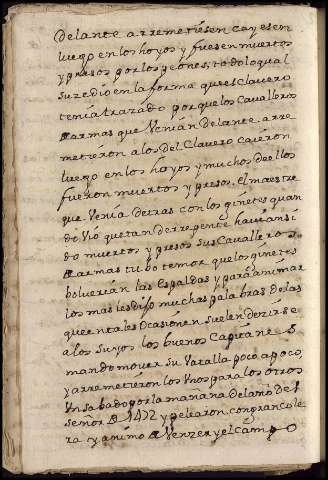 delante arremetiesen cayesen
luego en los hoyos y fuesen muertos
y presos por los peones, todo lo qual
sucedio en la forma que el Clavero
tenia trazado porque los Cavalleros
de armas que Venian delante arre
metieron a los del Clavero caieron
luego en los hoyos y muchos de ellos
fueron muertos y presos, el maestre
que Venia detras con los ginetes quan
do Vio que tan de repente havian si
do muertos y presos sus Cavalleros
de armas tubo temor que los ginetes
bolverian las espaldas y para animar
los mas les dijo muchas palabras de las
que en tales ocasiones suelen decirse
a los suyos los buenos Capitanes
mando mover su Vatalla poco a poco,
y arremetieron los Vnos para los otros
Vn sabado por la mañana del año del
señor de 1472 y pelearon con gran cole
ra y animo de Venzer y el campo